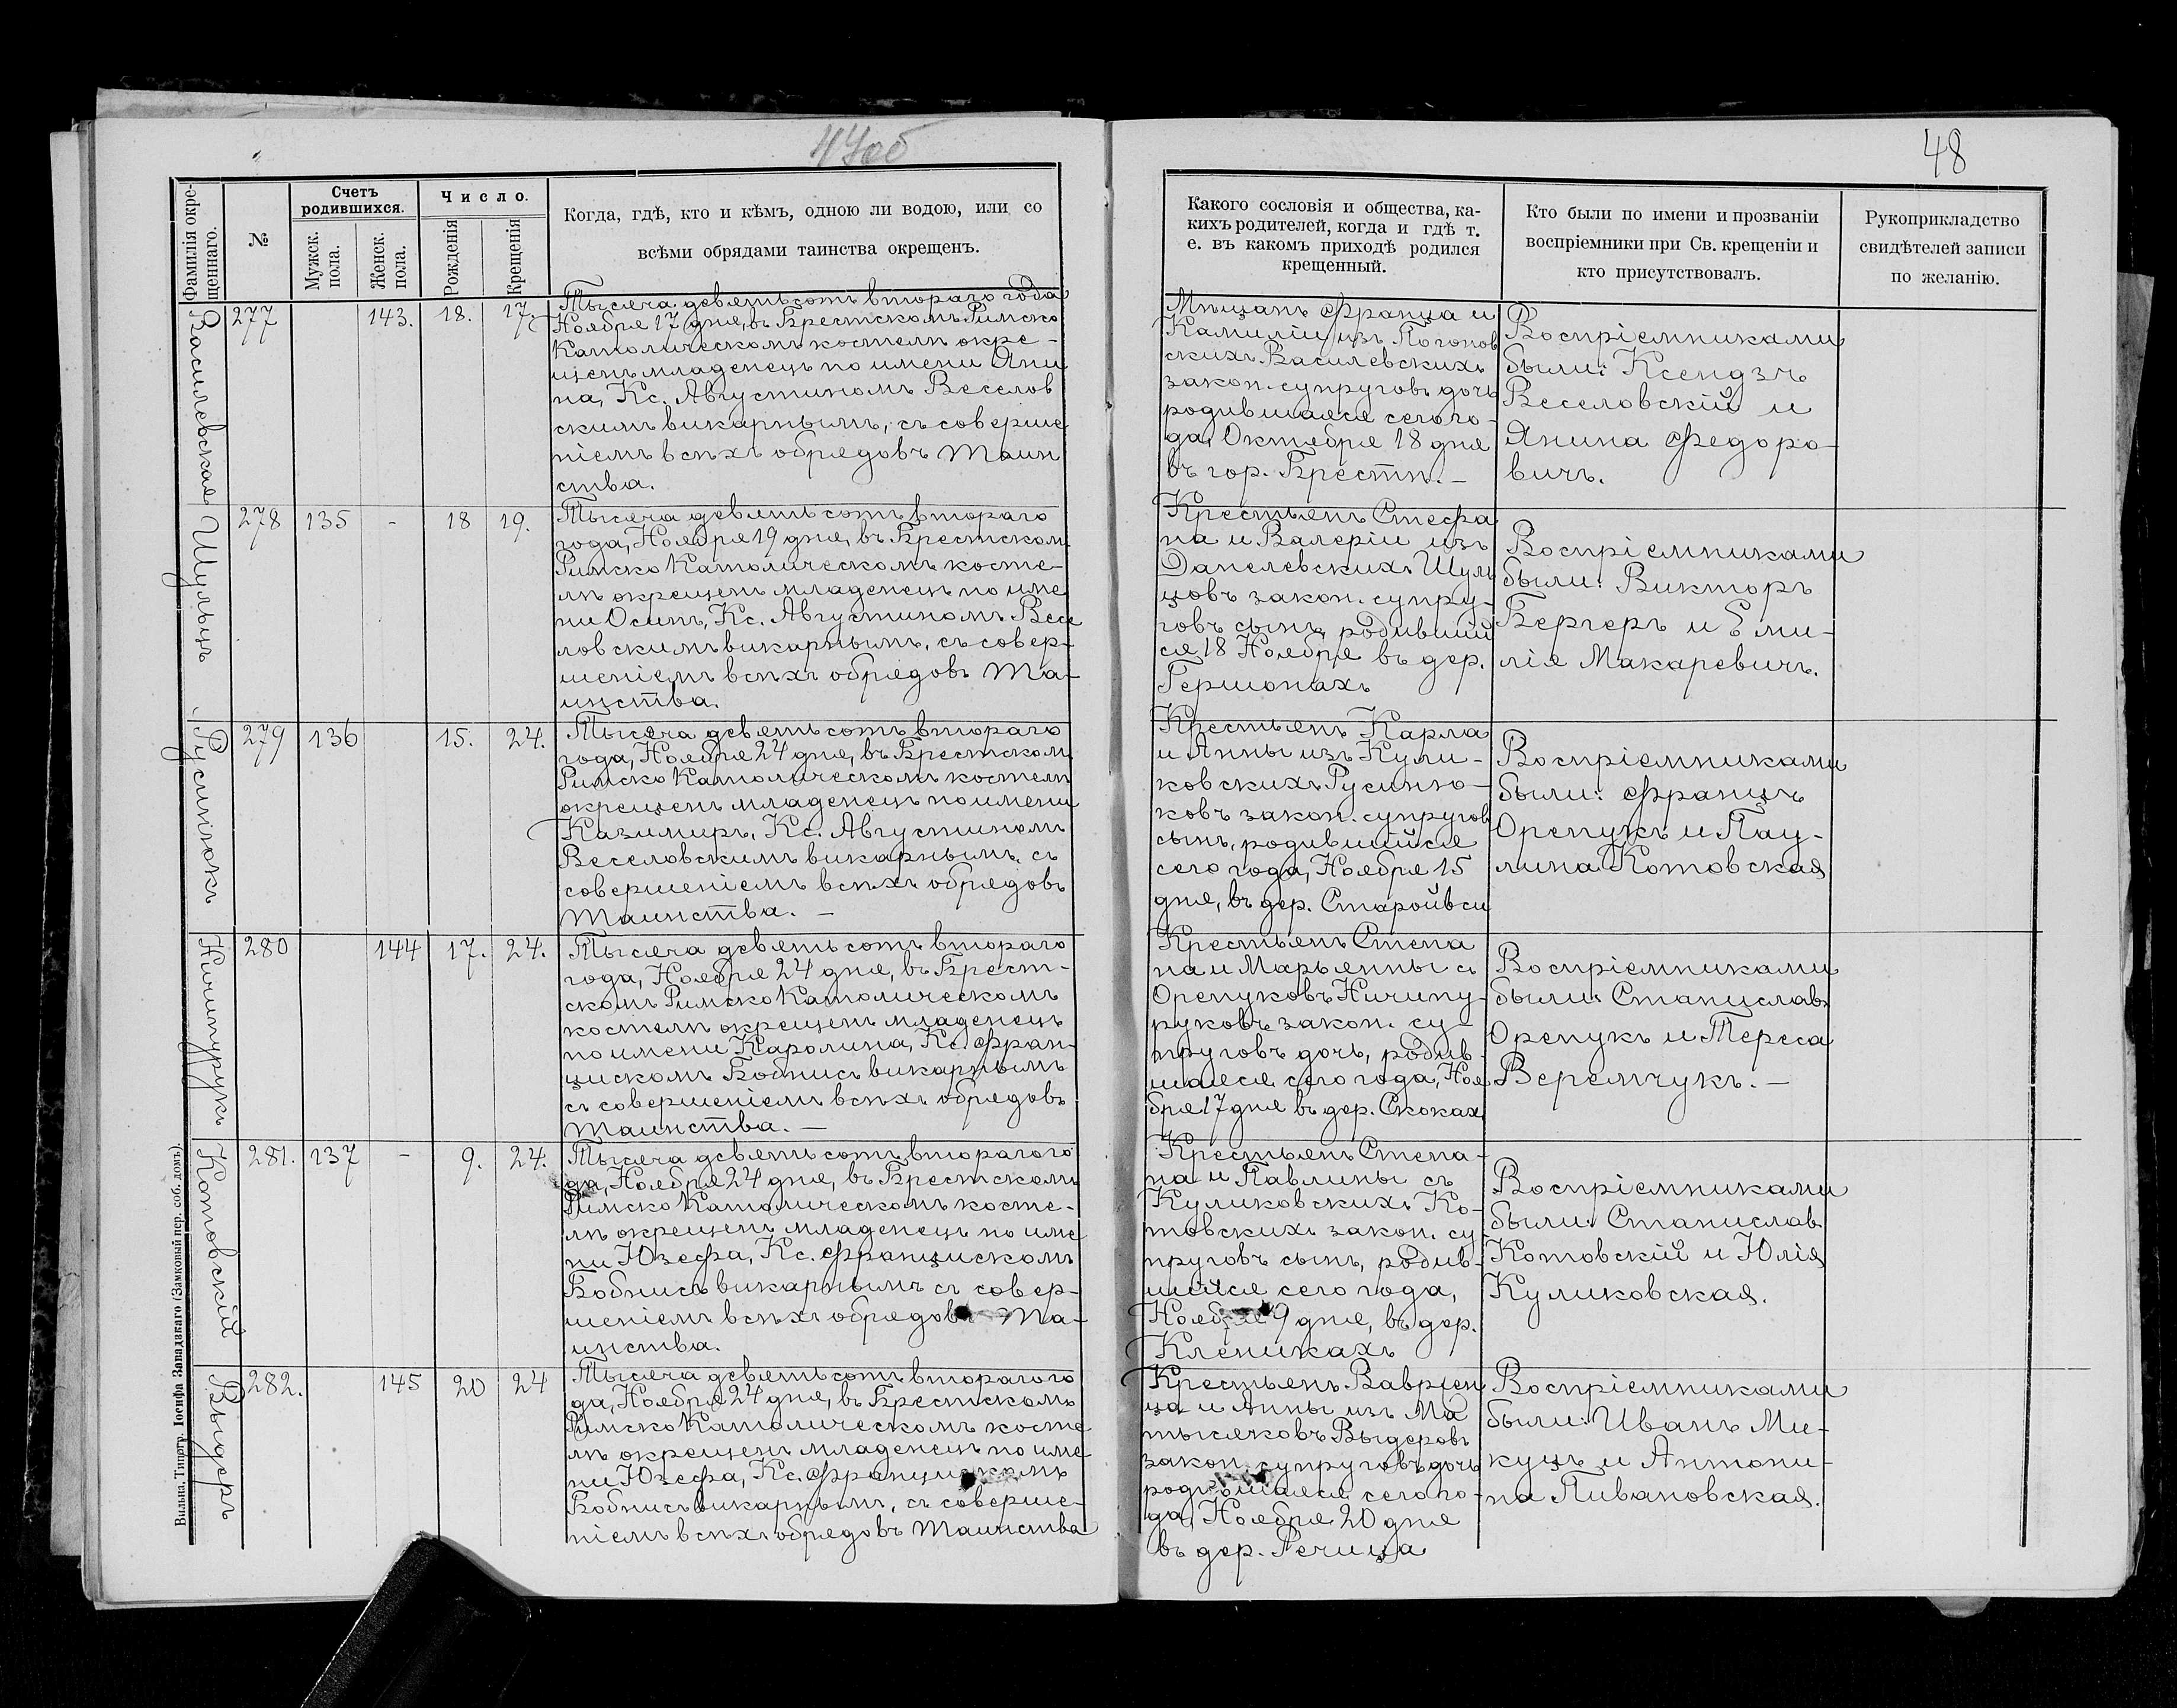 47об
48
Фамилія окре-
щеннаго.
№
Счетъ
родившихся.
Мужск.
пола.
Женск.
пола.
Число.
Рожденія
Крещенія
Когда, гдѣ, кто и кѣмъ, одною ли водою, или со
всѣми обрядами таинства окрещенъ.
Какого сословія и общества, ка-
кихъ родителей, когда и гдѣ т.
е. въ какомъ приходѣ родился
крещенный.
Кто были по имени и прозванію
воспріемники при Св. крещеніи и
кто присутствовалъ.
Рукоприкладство
свидѣтелей записи
по желанію.
Василевская
277
143.
18.
17.
Тысяча девятьсотъ втораго года
Ноября 17 дня, въ Брестскомъ Римско
Католическомъ костелѣ окре-
щенъ младенецъ по имени Яни
на, Кс. Августиномъ Веселов
скимъ викарнымъ, съ соверше
ніемъ всѣхъ обрядовъ Таин
ства.
Мѣщанъ Франца и
Камиліи изъ Погонов
скихъ Василевскихъ
закон. супруговъ дочь
родившаяся сего го-
да, Октября 18 дня
въ гор. Брестѣ. –
Воспріемниками
были: Ксендзъ
Веселовскій и
Янина Федоро-
вичъ.
Шульцъ
278
135
-
18
19.
Тысяча девятьсотъ втораго
года, Ноября 19 дня, въ Брестскомъ
Римско Католическомъ косте-
лѣ окрещенъ младенецъ по име
ни Осипъ, Кс. Августиномъ Весе
ловскимъ викарнымъ, съ совер-
шеніемъ всѣхъ обрядовъ Та-
инства.
Крестьянъ Стефа
на и Валеріи изъ
Данелевскихъ Шуль
цовъ закон. супру-
говъ сынъ, родившій
ся 18 Ноября въ дер.
Гершонахъ
Воспріемниками
были: Викторъ
Бергеръ и Еми-
лія Макаревичъ.
Русинюкъ
279
136
15.
24.
Тысяча девятьсотъ втораго
года, Ноября 24 дня, въ Брестскомъ
Римско Католическомъ костелѣ
окрещенъ младенецъ по имени
Казимиръ, Кс. Августиномъ
Веселовскимъ викарнымъ, съ
совершеніемъ всѣхъ обрядовъ
Таинства. –
Крестьянъ Карла
и Анны изъ Кули-
ковскихъ Русиню-
ковъ закон. супруговъ
сынъ, родившійся
сего года, Ноября 15
дня, въ дер. Старойвси
Воспріемниками
были: Францъ
Оренукъ и Пау-
лина Котовская
Ничипурукъ
280
144
17.
24.
Тысяча девятьсотъ втораго
года, Ноября 24 дня, въ Брест-
скомъ Римско Католическомъ
костелѣ окрещенъ младенецъ
по имени Каролина, Кс. Фран-
цискомъ Бобнисъ викарнымъ
съ совершеніемъ всѣхъ обрядовъ
Таинства. –
Крестьянъ Степа
на и Марьянны съ
Оренуковъ Ничипу-
руковъ закон. су-
пруговъ дочь, родив-
шаяся сего года, Ноя
бря 17 дня въ дер. Скокахъ
Воспріемниками
были: Станиславъ
Оренукъ и Тереса
Веремчукъ. –
Котовскій
281.
137
-
9.
24.
Тысяча девятьсотъ втораго го
да, Ноября 24 дня, въ Брестскомъ
Римско Католическомъ косте-
лѣ окрещенъ младенецъ по име
ни Юзефа, Кс. Францискомъ
Бобнисъ викарнымъ съ совер-
шеніемъ всѣхъ обрядовъ Та-
инства.
Крестьянъ Степа-
на и Павлины съ
Куликовскихъ Ко-
товскихъ закон. су
пруговъ сынъ, родив-
шійся сего года,
Ноября 9 дня, въ дер.
Кленикахъ
Воспріемниками
были: Станиславъ
Котовскій и Юлія
Куликовская.
Выдеръ
282.
145
20
24
Тысяча девятьсотъ втораго го
да, Ноября 24 дня, въ Брестскомъ
Римско Католическомъ косте
лѣ окрещенъ младенецъ по име
ни Юзефа, Кс. Францискомъ
Бобнисъ викарнымъ, съ соверше-
ніемъ всѣхъ обрядовъ Таинства
Крестьянъ Ваврíен
ца и Анны изъ Ма
тысяковъ Выдеровъ
закон. супруговъ дочь
родившаяся сего го-
да, Ноября 20 дня
въ дер. Речица
Воспріемниками
были: Иванъ Ми-
куцъ и Антони-
на Пивановская.
Вильна, Типогр. Іосифа Завадзкаго (Замковый пер. соб. домъ).